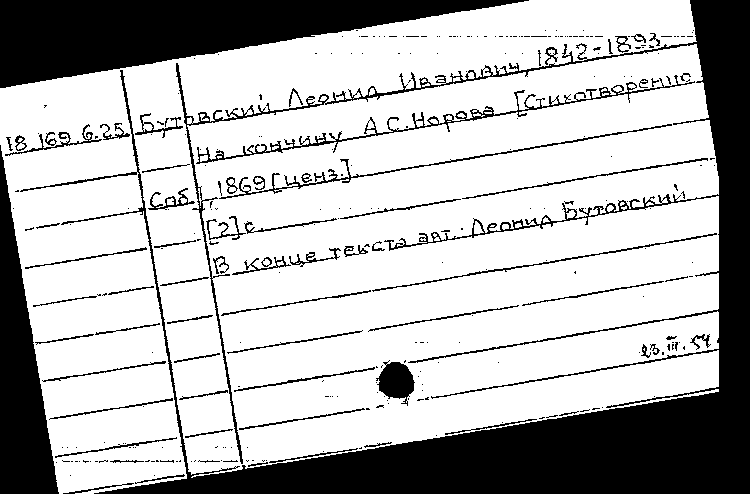 18.169.6.25 Бутовский, Леонид Иванович, 1842-1893.
На кончину А.С.Норова [Стихотворение
Спб., 1869 [ценз.].
[2] с.
В конце текста авт.: Леонид Бутовский
23.III.54.